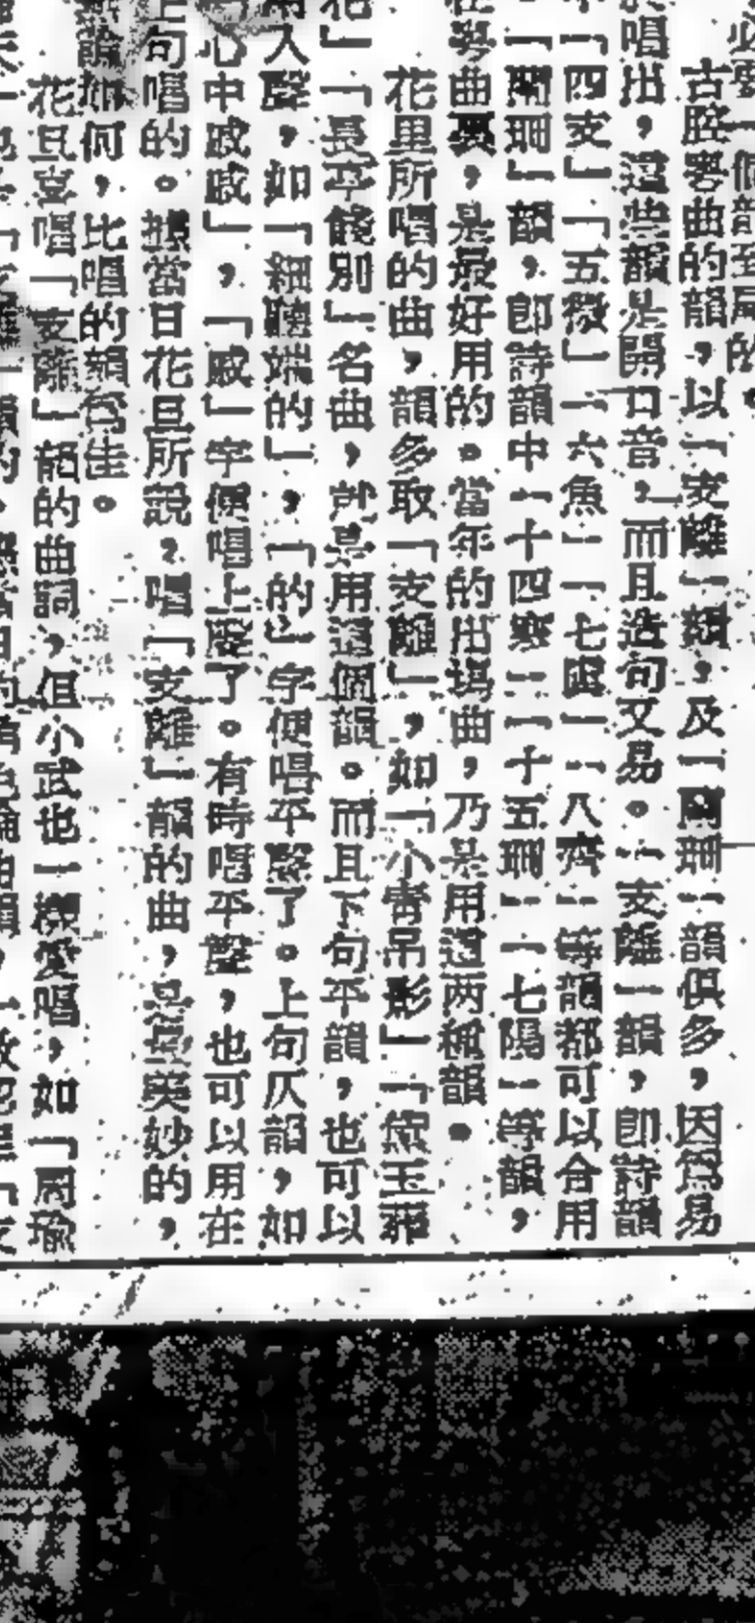 必要一個韻至尾的
古腔粤曲的韻，以「支離」類，及「闌珊」韻俱多，因爲易
唱出，這些韻是開口音，而且造句又易。「支離」韻，卽詩韻
「四支」「五微」「六魚」「七虞」「八齊」等韻都可以合用
「闌珊」韻，卽詩韻中「十四寒」「十五珊」「七陽」等韻，
在粤曲裏，是最好用的。當年的出塲曲，乃是用這两種韻。
花旦所唱的曲，韻多取「支離」，如「小青吊影」「黛玉葬
花」「長亭餞別」名曲，就是用這個韻。而且下句平韻，也可以
用入聲，如「細聽端的」，「的」字便唱平聲了。上句仄韻，如
心中戚戚」，「戚」字便唱上聲了。有時唱平聲，也可以用在
上句唱的。據當日花旦所說，唱「支離」韻的曲，是最美妙的，
無論如何，比唱的韻爲佳。
花旦喜唱「支離」韻的曲詞，但小武也一樣愛唱，如「周瑜